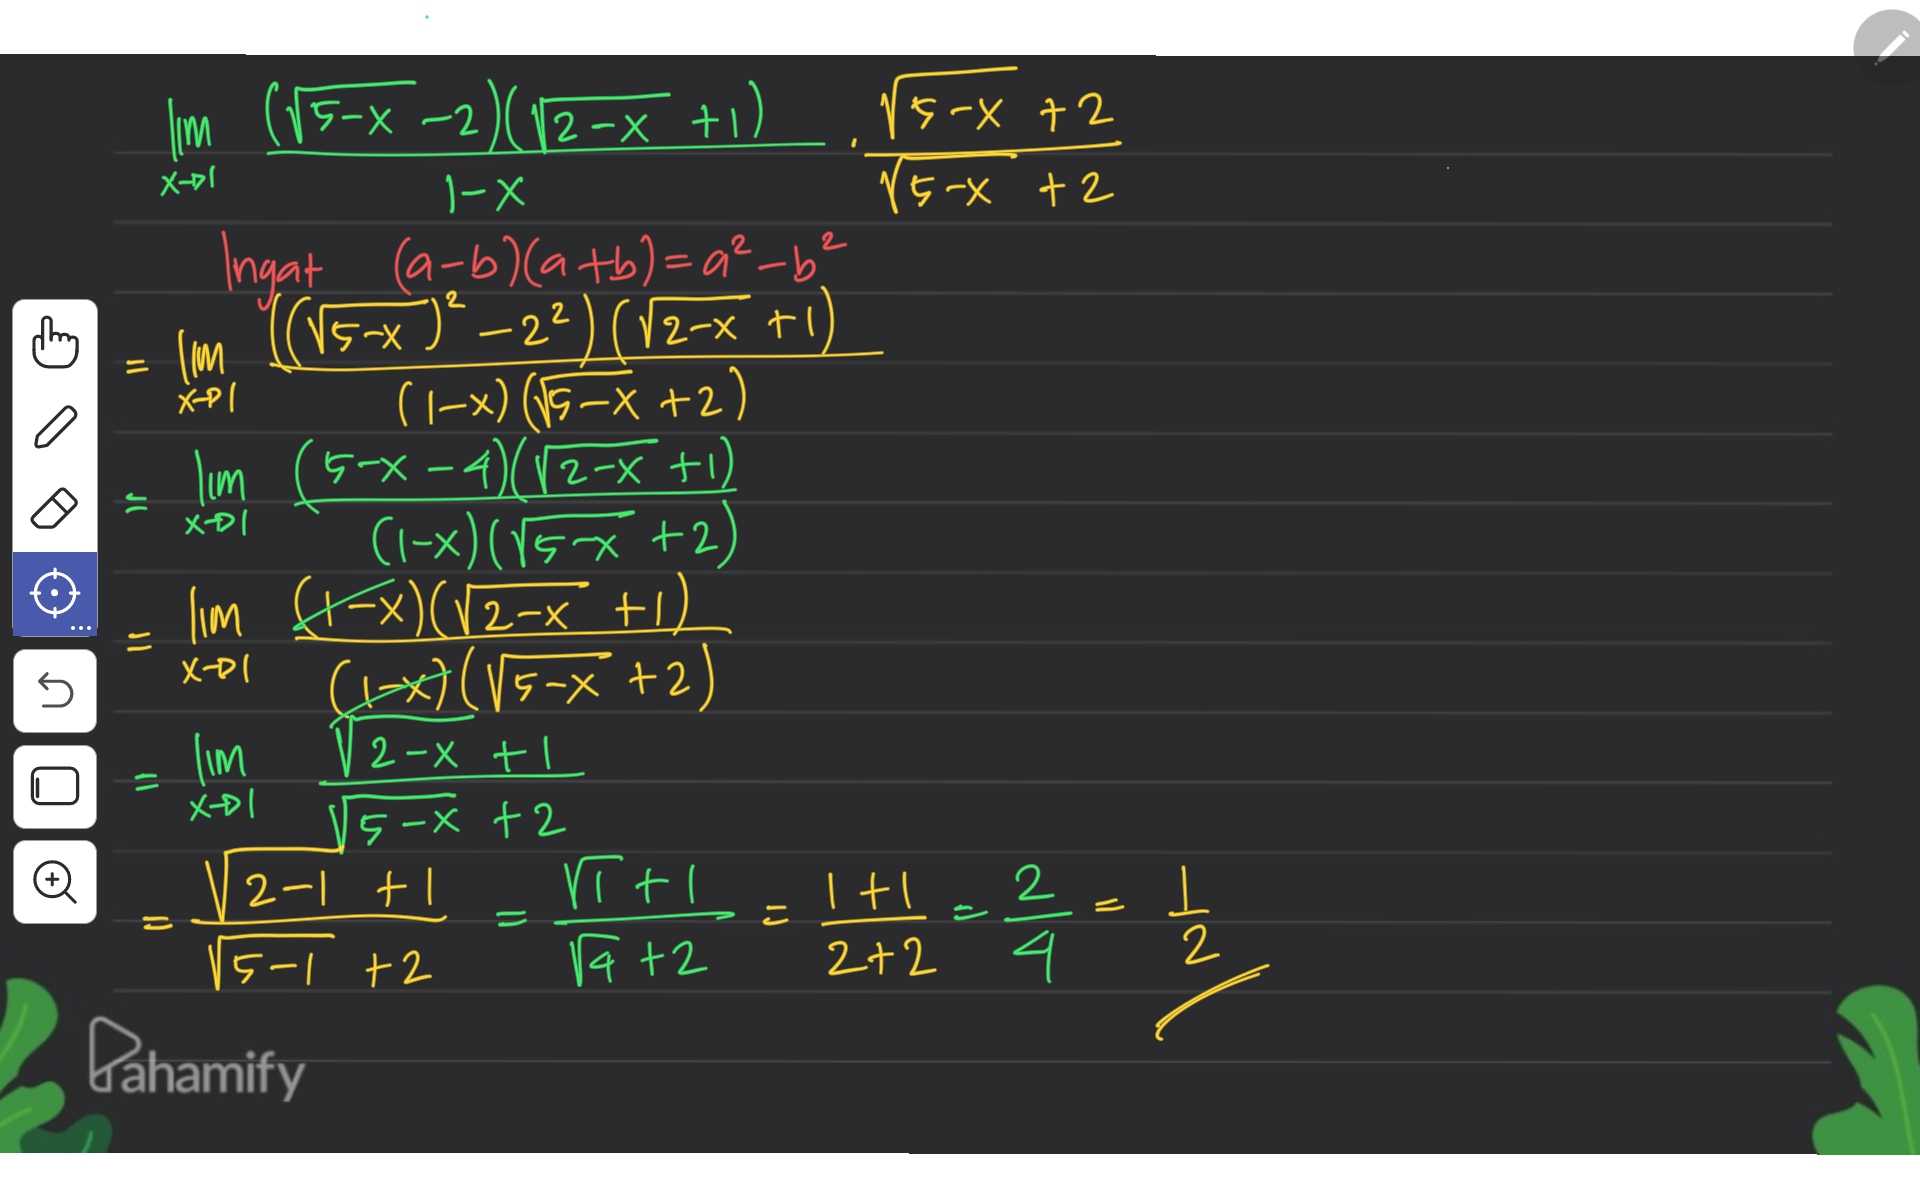 lim x→1 (√5-x -2)(√2-x +1) / 1-x . √5-x +2 / √5-x +2
Ingat (a-b)(a+b)=a²-b²
= lim x→1 ((√5-x)² -2²)(√2-x +1) / (1-x)(√5-x +2)
= lim x→1 (5-x-4)(√2-x +1) / (1-x)(√5-x +2)
= lim x→1 (1-x)(√2-x +1) / (1-x)(√5-x +2)
= lim x→1 √2-x +1 / √5-x +2
= √2-1 +1 / √5-1 +2 = √1 +1 / √4 +2 = 1+1 / 2+2 = 2/4 = 1/2
Pahamify